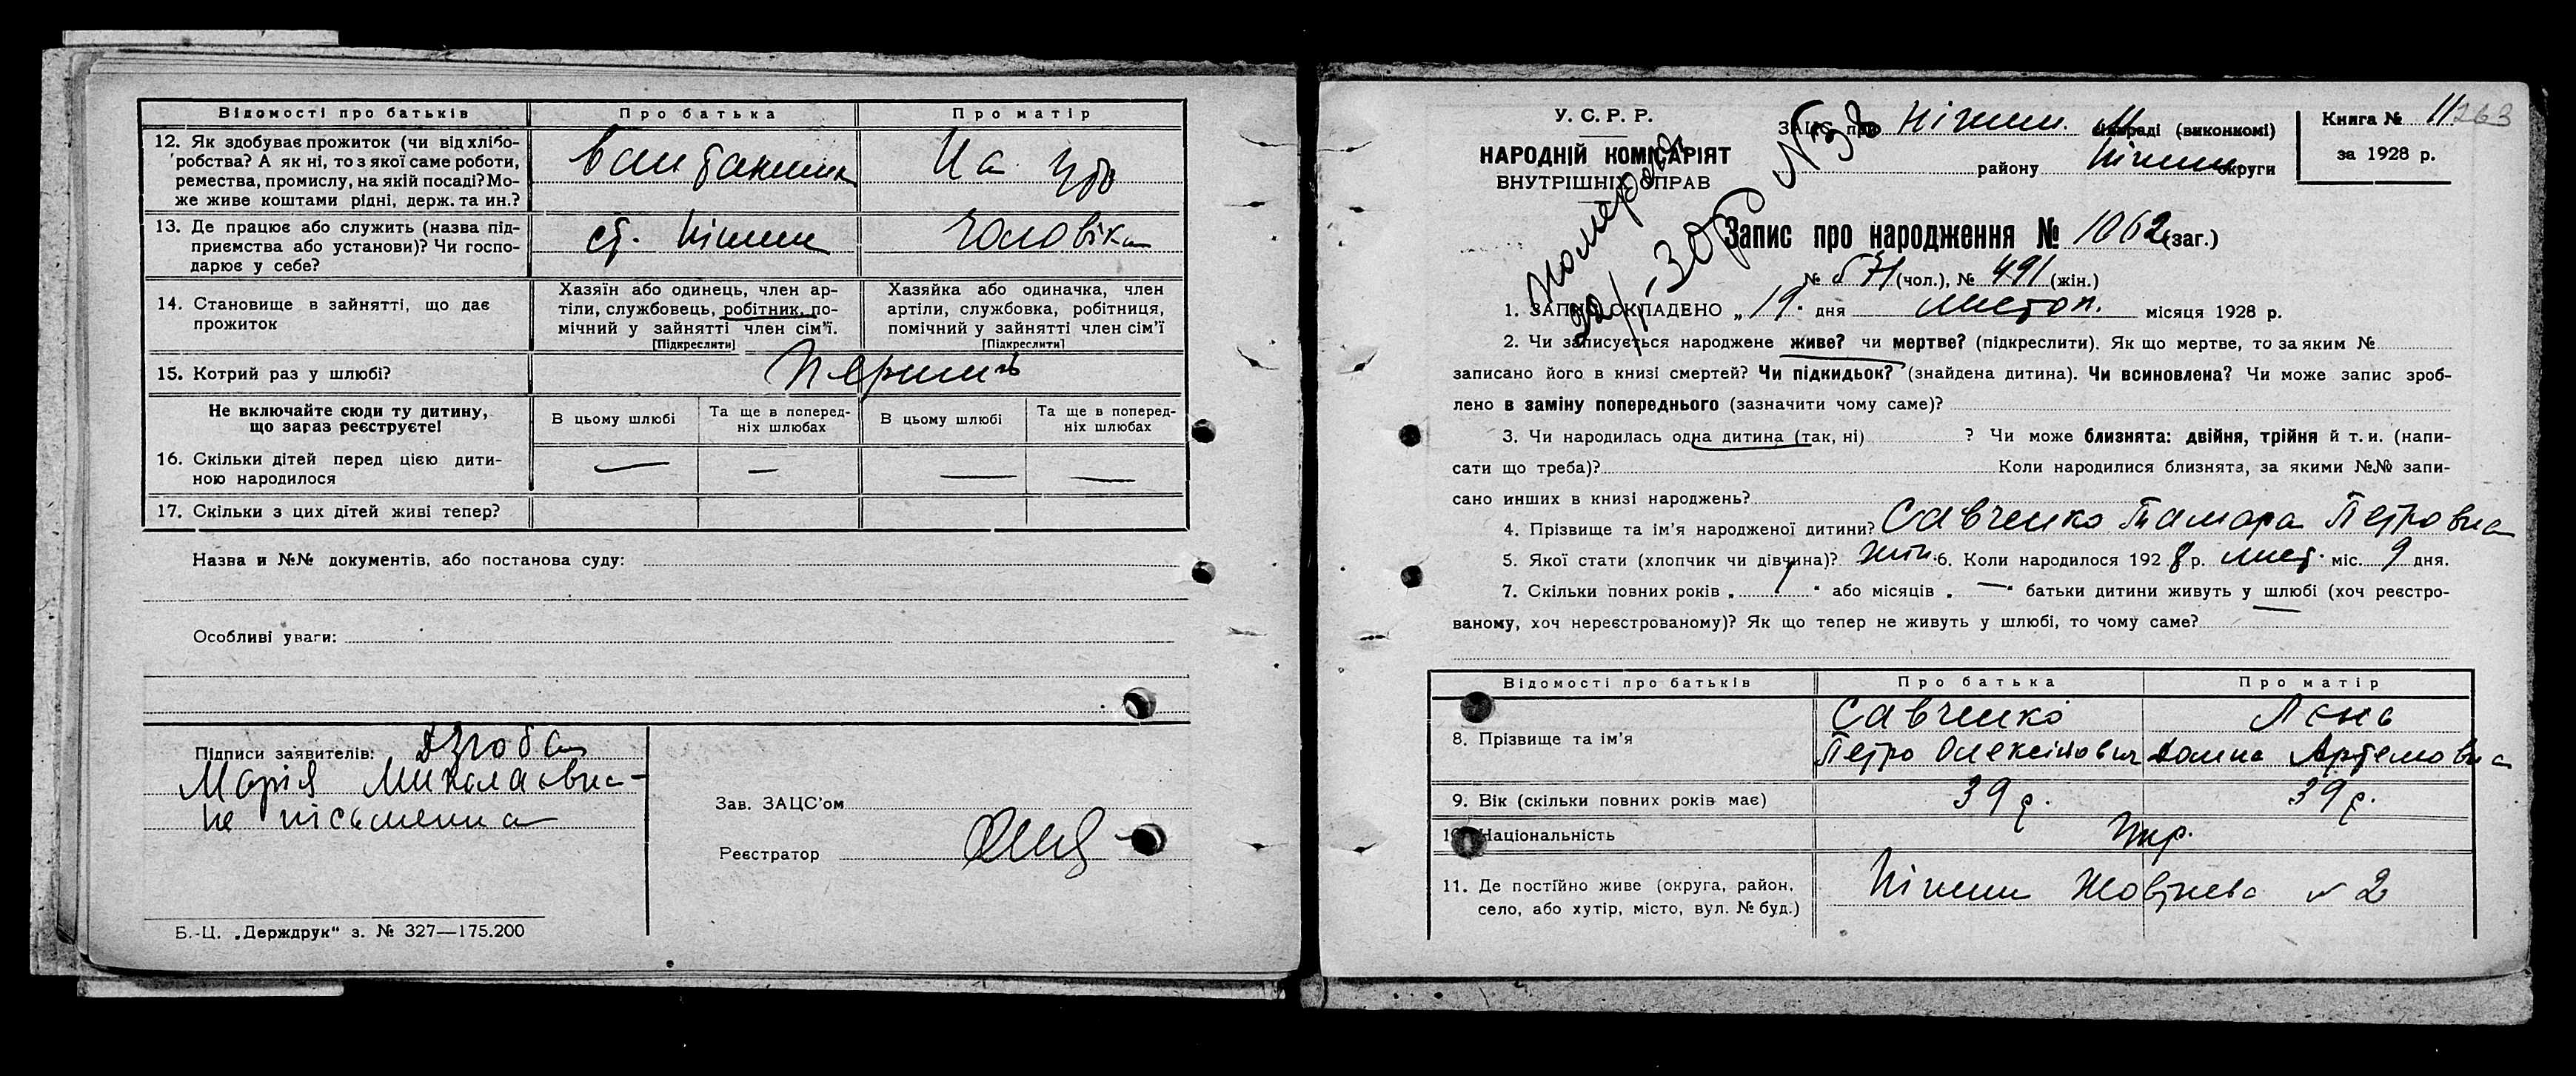 Відомості про батьків Про батька Про матір
12. Як здобуває прожиток (чи від хлібо-
робства? А як ні, то з якої саме роботи,
ремества, промислу, на якій посаді? Мо-
же живе коштами рідні, держ. та ин.?
На утр
13. Де працює або служить (назва під-
приємства або установи)? Чи госпо-
дарює у себе?
ст. Ніжин чоловіка
14. Становище в зайнятті, що дає
прожиток
Хазяїн або одинець, член ар-
тіли, службовець, робітник, по-
мічний у зайнятті член сім'ї.
[Підкреслити]
Хазяйка або одиначка, член
артіли, службовка, робітниця,
помічний у зайнятті член сім'ї
[Підкреслити]
15. Котрий раз у шлюбі? Перший
Не включайте сюди ту дитину,
що зараз реєструєте!
В цьому шлюбі
Та ще в поперед-
ніх шлюбах
В цьому шлюбі
Та ще в поперед-
ніх шлюбах
16. Скільки дітей перед цією дити-
ною народилося
— — — —
17. Скільки з цих дітей живі тепер?
Назва и №№ документів, або постанова суду:
Особливі уваги:
Підписи заявителів: Дзюба
Марія Миколаєвна -
не письменна
Зав. ЗАЦС'ом
Реєстратор
Б.-Ц. „Держдрук" з. № 327—175.200
У. С. Р. Р.
НАРОДНІЙ КОМІСАРІЯТ
ВНУТРІШНІХ СПРАВ
ЗАЦС при Ніжин. М раді (виконкомі)
району Ніжин округи
Книга № 11 263
за 1928 р.
Померла
22/I-30р N 38
Запис про народження № 1062 (заг.)
№ 571 (чол.), № 491 (жін.)
1. ЗАПИС СКЛАДЕНО „19" дня листоп. місяця 1928 р.
2. Чи записується народжене живе? чи мертве? (підкреслити). Як що мертве, то за яким №
записано його в книзі смертей? Чи підкидьок? (знайдена дитина). Чи всиновлена? Чи може запис зроб-
лено в заміну попереднього (зазначити чому саме)?
3. Чи народилась одна дитина (так, ні) ? Чи може близнята: двійня, трійня й т. и. (напи-
сати що треба)? Коли народилися близнята, за якими №№ запи-
сано инших в книзі народжень?
4. Прізвище та ім'я народженої дитини? Савченко Тамара Петровна
5. Якої стати (хлопчик чи дівчина)? жін. 6. Коли народилося 1928 р. лист. міс. 9 дня.
7. Скільки повних років „ 1 " або місяців „ — " батьки дитини живуть у шлюбі (хоч реєстро-
ваному, хоч нереєстрованому)? Як що тепер не живуть у шлюбі, то чому саме?
Відомості про батьків Про батька Про матір
8. Прізвище та ім'я
Савченко
Петро Олексійович
Лень
Домна Артемовна
9. Вік (скільки повних років має) 39 р. 39 р.
10. Національність Укр.
11. Де постійно живе (округа, район,
село, або хутір, місто, вул. № буд.)
Ніжин Жовтнева № 2